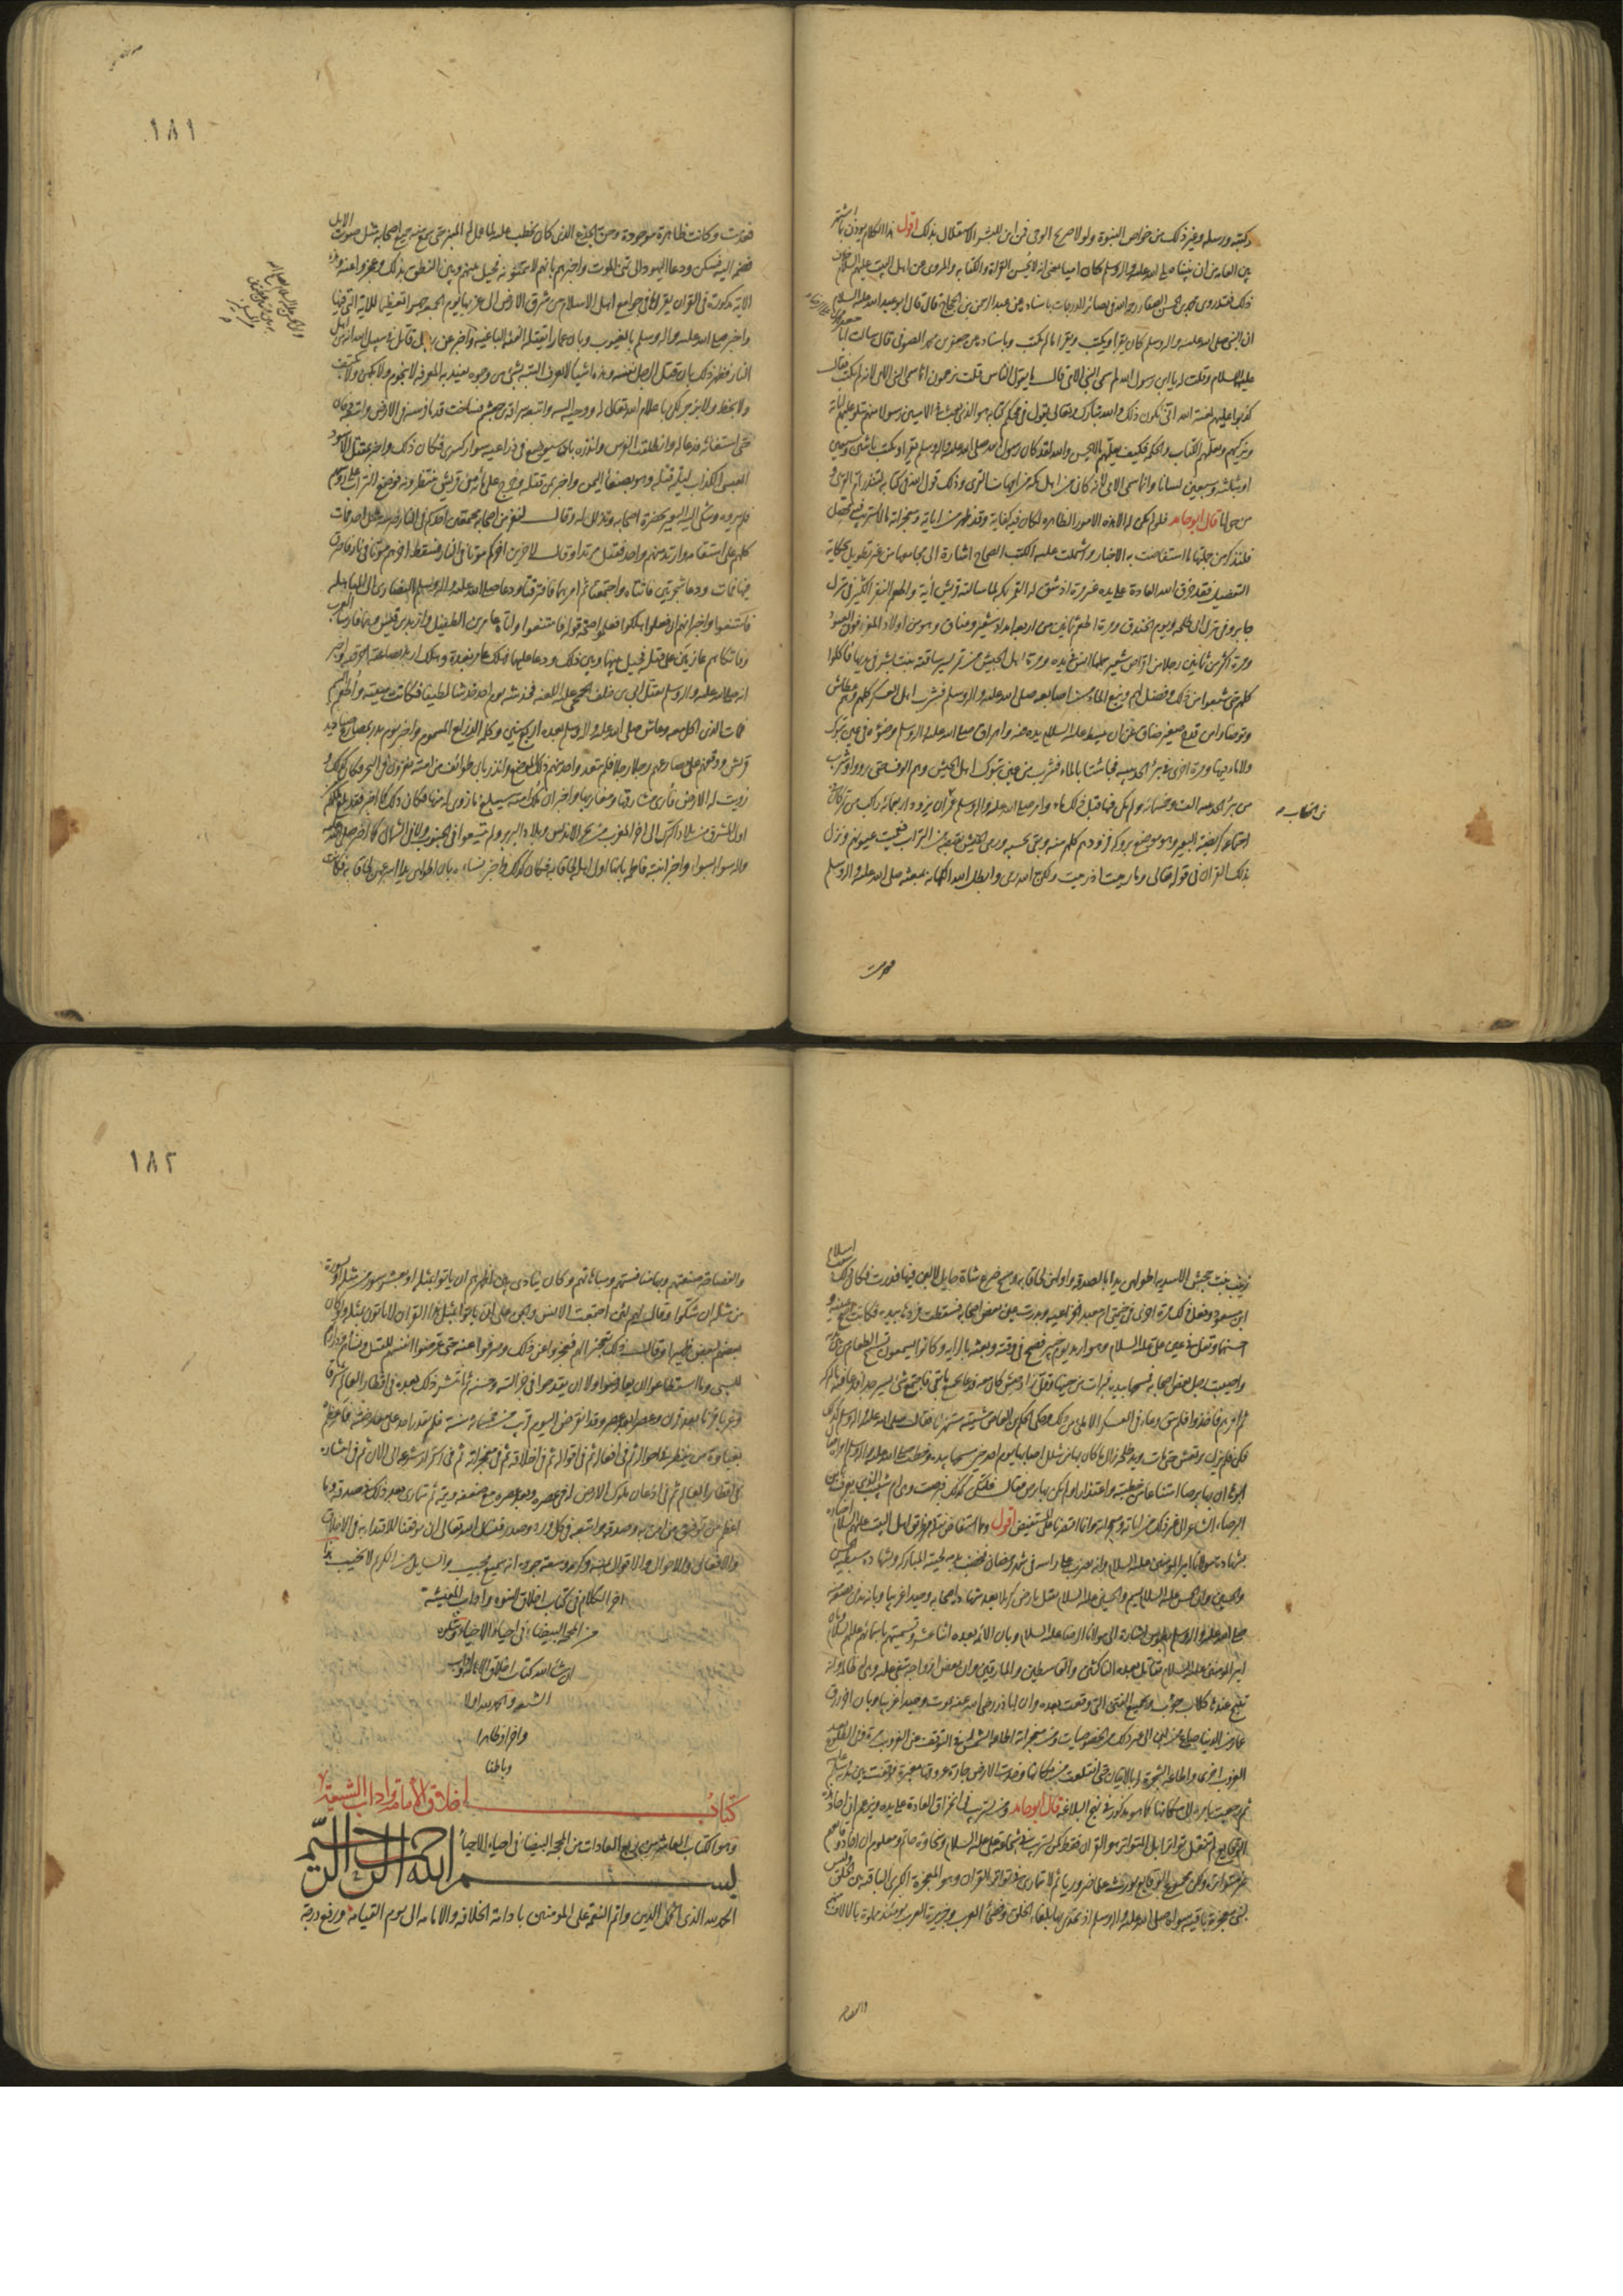 وكتبه ورسله وغير ذلك من خواص النبوة ولولا صريح الوحي فمن اين للبشر الاستقلال بذلك اقول هذا الكلام يوذن باشتهار
بين العامة من ان نبينا صلى الله عليه واله وسلم كان اميا بمعنى انه لا يحسن القراءة والكتابة والمروي عن اهل البيت عليهم السلام خلاف
ذلك فقد روى محمد بن الحسن الصفار رحمه الله في بصائر الدرجات باسناده عن عبد الرحمن بن الحجاج قال قال ابو عبد الله عليه السلام
ان النبي صلى الله عليه واله وسلم كان يقرا ويكتب ويقرا ما لم يكتب وباسناده عن جعفر بن محمد الصوفي قال سالت ابا جعفر
عليه السلام وقلت له يا ابن رسول الله لم سمي النبي الامي قال ما يقول الناس قلت يزعمون انما سمي النبي الامي لانه لم يكتب فقال
كذبوا عليهم لعنة الله انى يكون ذلك والله تبارك وتعالى يقول في محكم كتابه هو الذي بعث في الاميين رسولا منهم يتلو عليهم اياته
ويزكيهم ويعلمهم الكتاب والحكمة فكيف يعلمهم ما لا يحسن والله لقد كان رسول الله صلى الله عليه واله وسلم يقرا ويكتب باثنين وسبعين
او بثلثة وسبعين لسانا وانما سمي الامي لانه كان من اهل مكة ومكة من امهات القرى وذلك قول الله في كتابه لتنذر ام القرى و
من حولها قال ابو حامد فلو لم يكن له الا هذه الامور الظاهرة لكان فيه كفاية وقد ظهر من اياته ومعجزاته ما لا يستريب فيه محصل
فلنذكر من جملتها ما استفاضت به الاخبار واشتملت عليه الكتب الصحاح اشارة الى مجامعها من غير تطويل بحكاية
التفصيل فقد خرق الله العادة على يده غير مرة اذ شق له القمر بمكة لما سالته قريش اية واطعم النفر الكثير في منزل
جابر وفي منزل ابي طلحة ويوم الخندق ومرة اطعم ثمانين من اربعة امداد شعير وعناق وهو من اولاد المعز فوق العتود
ومرة اكثر من ثمانين رجلا من اقراص شعير حملها انس في يده ومرة اهل الجيش من تمر يسير ساقته بنت بشر في يديها فاكلوا
كلهم حتى شبعوا من ذلك وفضل لهم ونبع الماء من بين اصابعه صلى الله عليه واله وسلم فشرب اهل العسكر كلهم وهم عطاش
وتوضاوا من قدح صغير ضاق عن ان يبسط عليه السلام يده فيه واهراق صلى الله عليه واله وسلم وضوءه في عين تبوك
ولا ماء فيها ومرة اخرى في بئر الحديبية فجاشتا بالماء فشرب من عين تبوك اهل الجيش وهم الوف حتى رووا وشرب
من بئر الحديبية الف وخمسمائة ولم يكن فيها قبل ذلك ماء وامر صلى الله عليه واله وسلم عمر ان يزود اربعمائة راكب من تمر كان في
اجتماعه كربضة البعير وهو موضع بروكه فزودهم كلهم منه وبقي بحسبه ورمى الجيش بقبضة من التراب فعميت عيونهم ونزل
بذلك القران في قوله تعالى وما رميت اذ رميت ولكن الله رمى وابطل الله الكهانة بمبعثه صلى الله عليه واله وسلم
فعدمت
١٨١
فعدمت وكانت ظاهرة موجودة وحن الجذع الذي كان يخطب عليه لما عمل له المنبر حتى سمع منه جميع اصحابه مثل صوت الابل
فضمه اليه فسكن ودعا اليهود الى تمني الموت واخبرهم بانهم لا يتمنونه فحيل بينهم وبين النطق بذلك وعجزوا عنه وهذه
الاية مذكورة في القران يقرا بها في جوامع اهل الاسلام من شرق الارض الى غربها يوم الجمعة جهرا تعظيما للاية التي فيها
واخبر صلى الله عليه واله وسلم بالغيوب وبان عمارا تقتله الفئة الباغية واخبر عن رجل قاتل في سبيل الله انه من اهل
النار فظهر ذلك بان قتل الرجل نفسه وهذه اشياء لا تعرف البتة بشيء من وجوه تقدمه المعرفة لا بنجوم ولا بكهن ولا بكتف
ولا بخط ولا بزجر لكن باعلام الله تعالى له ووحيه اليه واتبعه سراقة بن جعشم فساخت قدما فرسه في الارض واتبعه دخان
حتى استغاثه فدعا له وانطلقت الفرس وانذره بان سيوضع في ذراعيه سوار كسرى فكان ذلك واخبر بمقتل الاسود
العنسي الكذاب ليلة قتله وهو بصنعاء اليمن واخبر بمن قتله وخرج على مائة من قريش ينتظرونه فوضع التراب على رؤسهم
فلم يروه وشكى اليه البعير بحضرة اصحابه وتذلل له وقال لنفر من اصحابه مجتمعين احدكم في النار ضرسه مثل احد فمات
كلهم على استقامة وارتد منهم واحد فقتل مرتدا وقال لاخرين اخركم موتا في النار فسقط اخرهم موتا في نار فاحترق
فيها فمات ودعا شجرتين فاتتاه واجتمعتا ثم امرهما فافترقتا ودعا صلى الله عليه واله وسلم النصارى الى المباهلة
فامتنعوا واخبر انهم ان فعلوا هلكوا فعلموا صحة قوله فامتنعوا واتاه عامر بن الطفيل واربد بن قيس وهما فارسا العرب
وفاتكاهم عازمين على قتله فحيل بينهما وبين ذلك ودعا عليهما فهلك عامر بغدة وهلك اربد بصاعقة احرقته واخبر
انه صلى الله عليه واله وسلم يقتل ابي بن خلف الجمحي عليه اللعنة فخدشه يوم احد خدشا لطيفا فكانت منيته واطعم السم
فمات الذي اكل معه وعاش صلى الله عليه واله وسلم بعده اربع سنين وكلمه الذراع المسموم واخبر يوم بدر بمصارع صناديد
قريش ووقفهم على مصارعهم رجلا رجلا فلم يتعد واحد منهم ذلك الموضع وانذر بان طوائف من امته يغزون في البحر فكان كذلك و
زويت له الارض فاري مشارقها ومغاربها واخبر ان ملك امته سيبلغ ما زوي له منها فكان ذلك كما اخبر فقد بلغ ملكهم
اول المشرق من بلاد الترك الى اخر المغرب من بحر الاندلس وبلاد البربر ولم يتسعوا في الجنوب ولا في الشمال كما اخبر صلى الله عليه
واله سواء بسواء واخبر ابنته فاطمة بانها اول اهله لحاقا به فكان كذلك واخبر نساءه بان اطولهن يدا اسرعهن لحاقا به فكانت
زينب بنت جحش الاسدية اطولهن يدا بالصدقة واولهن لحاقا به ومسح ضرع شاة حايل لا لبن فيها فدرت فكان ذلك سبب اسلام
ابن مسعود وفعل ذلك مرة اخرى في خيمتي ام معبد الخزاعية وندرت عين بعض اصحابه فسقطت فردها بيده فكانت اصح عينيه و
احسنهما وتفل في عين علي عليه السلام وهو ارمد يوم خيبر فصح في وقته وبعثه بالراية وكانوا يسمعون تسبيح الطعام بين يديه
واصيبت رجل بعض اصحابه فمسحها بيده فبرات من حينها وقل زاد جيش كان معه فدعا بجميع ما بقي فاجتمع شيء يسير جدا فدعا فيه بالبركة
ثم امرهم فاخذوا فلم يبق وعاء في العسكر الا ملئ من ذلك وحكى الحكم بن العاص مشيته مستهزئا فقال صلى الله عليه واله وسلم كذلك
فكن فلم يزل يرتعش حتى مات
ابوها ان بها برصا امتناعا من خطبته واعتذارا ولم يكن بها برص فقال فلتكن كذلك فبرصت وهي ام شبيب الذي يعرف بابن
البرصاء الشاعر الى غير ذلك من اياته ومعجزاته وانما اقتصرنا على المستفيض اقول ومما استفاض نقله من طريق اهل البيت عليهم السلام اخباره
بشهادة مولانا امير المؤمنين عليه السلام وانه يضرب على راسه في شهر رمضان فتخضب به لحيته المباركة وشهادة سبطيه الحسن
والحسين وان الحسن عليه السلام يسم والحسين عليه السلام يقتل بارض كربلا بعد شهادة اصحابه وحيدا غريبا وبانه يدفن بضعة منه
صلى الله عليه واله وسلم بطوس اشارة الى مولانا الرضا عليه السلام وبان الائمة بعده اثنا عشر وتسميتهم باسمائهم عليهم السلام وبان
امير المؤمنين عليه السلام يقاتل بعده الناكثين والقاسطين والمارقين وان بعض ازواجه تبغي عليه وهي ظالمة وانه
تنبح عندها كلاب حوءب وبجميع الفتن التي وقعت بعده وان اباذر رضي الله عنه يموت وحيدا غريبا وبان اخر رزق
عمار من الدنيا صاع من لبن الى غير ذلك من الخصوصيات ومن معجزاته اطاعة الشمس له في التوقف عن الغروب مرة وفي الطلوع بعد
الغروب اخرى واطاعة الشجرة له بالاتيان حتى انقلعت من مكانها وخدت الارض جارة عروقها مغبرة فوقفت بين يديه وسلم عليه
ثم رجعت بامره الى مكانها كما هو مذكور في نهج البلاغة قال ابو حامد ومن يستريب في انخراق العادة على يده ويزعم ان احاد هذه
الوقايع لم تنقل تواترا بل المتواتر هو القران فقط كمن يستريب في شجاعة علي عليه السلام وسخاوة حاتم ومعلوم ان احاد وقايعهم
غير متواترة ولكن مجموع الوقايع يورث علما ضروريا ثم لا يتمارى في تواتر القران وهو المعجزة الكبرى الباقية بين الخلق وليس
لنبي معجزة باقية سواه صلى الله عليه واله وسلم اذ تحدى بها بلغاء الخلق وفصحاء العرب وجزيرة العرب يومئذ مملوة بالالاف منهم
والفصاحة
١٨٢
والفصاحة صنعتهم وبها منافستهم ومباهاتهم وكان ينادي بين اظهرهم ان ياتوا بمثله او بعشر سور من مثله او بسورة
من مثله ان شكوا وقال لهم لئن اجتمعت الانس والجن على ان ياتوا بمثل هذا القران لا ياتون بمثله ولو كان
بعضهم لبعض ظهيرا وقال ذلك تعجيزا لهم فعجزوا عن ذلك وصرفوا عنه حتى عرضوا انفسهم للقتل ونساءهم وذراريهم
للسبي وما استطاعوا ان يعارضوا ولا ان يقدحوا في جزالته وحسنه ثم انتشر ذلك بعده في اقطار العالم شرقا
وغربا قرنا بعد قرن وعصرا بعد عصر وقد انقرض اليوم قريب من خمسمائة سنة فلم يقدر احد على معارضته فاعظم
بغباوة من ينظر في احواله ثم في افعاله ثم في اقواله ثم في اخلاقه ثم في معجزاته ثم في استمرار شرعه الى الان ثم في انتشاره
في اقطار العالم ثم في اذعان ملوك الارض له في عصره وبعد عصره مع ضعفه ويتمه ثم يتمارى بعد ذلك في صدقه وما
اعظم توفيق من امن به وصدقه واتبعه في كل ورد وصدر فنسال الله تعالى ان يوفقنا للاقتداء به في الاخلاق
والافعال والاحوال والاقوال بمنه وكرمه وسعة جوده انه سميع مجيب والسايل من الكريم لا يخيب هذا
اخر الكلام في كتاب اخلاق النبوة واداب المعيشة
من المحجة البيضاء في احياء الاحياء ويتلوه
ان شاء الله كتاب اخلاق الامامة واداب
الشيعة والحمد لله اولا
واخرا وظاهرا
وباطنا
كتاب اخلاق الأمامة واداب الشيعة
وهو الكتاب العاشر من ربع العادات من المحجة البيضاء في احياء الاحياء
بسم الله الرحمن الرحيم
الحمد لله الذي اكمل الدين واتم النعمة على المومنين بادامة الخلافة والامامة الى يوم القيامة ورفع درجة